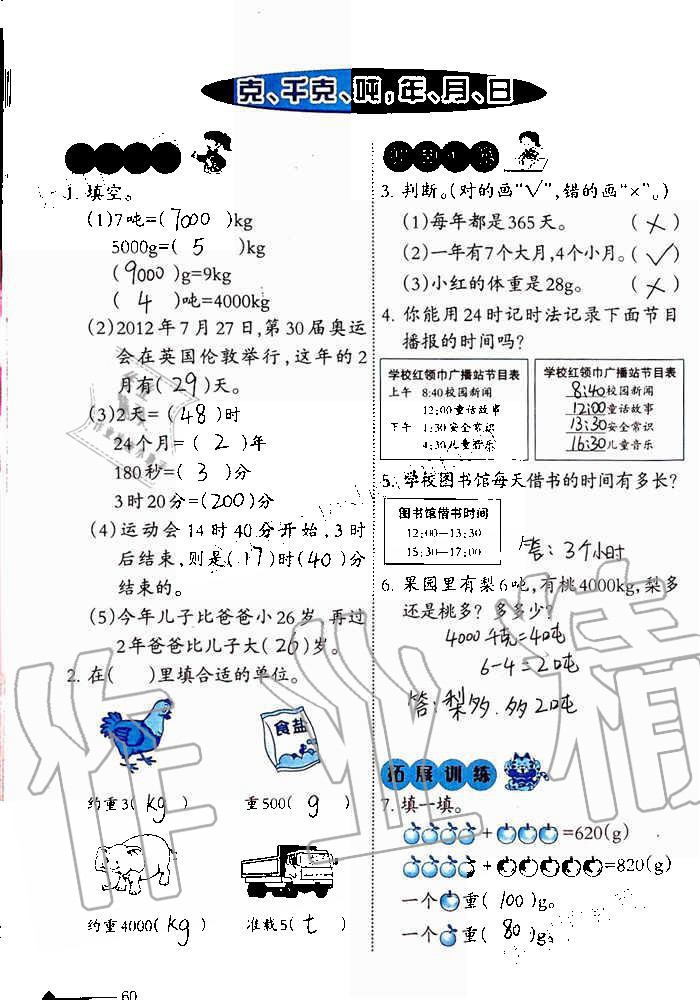 克、千克、吨,年、月、日
1. 填空。
(1)7吨=(7000)kg
5000g=( 5 )kg
(9000)g=9kg
( 4 )吨=4000kg
(2)2012年7月27日,第30届奥运
会在英国伦敦举行,这年的2
月有(29)天。
(3)2天=(48)时
24个月=( 2 )年
180秒=( 3 )分
3时20分=(200)分
(4)运动会14时40分开始,3时
后结束,则是(17)时(40)分
结束的。
(5)今年儿子比爸爸小26岁,再过
2年爸爸比儿子大(26)岁。
2. 在( )里填合适的单位。
食盐
约重3(kg) 重500( g )
约重4000(kg) 准载5( t )
60
3. 判断。(对的画“√”,错的画“×”。)
(1)每年都是365天。 (×)
(2)一年有7个大月,4个小月。(√)
(3)小红的体重是28g。 (×)
4. 你能用24时记时法记录下面节目
播报的时间吗?
学校红领巾广播站节目表
上午 8:40校园新闻
12:00童话故事
下午 1:30安全常识
4:30儿童音乐
学校红领巾广播站节目表
8:40校园新闻
12:00童话故事
13:30安全常识
16:30儿童音乐
5. 学校图书馆每天借书的时间有多长?
图书馆借书时间
12:00—13:30
15:30—17:00
答:3个小时
6. 果园里有梨6吨,有桃4000kg,梨多
还是桃多?多多少?
4000千克=40吨
6-4=20吨
答:梨多.多20吨
拓展训练
7. 填一填。
+ =620(g)
+ =820(g)
一个 重(100)g。
一个 重( 80 )g。
作业精